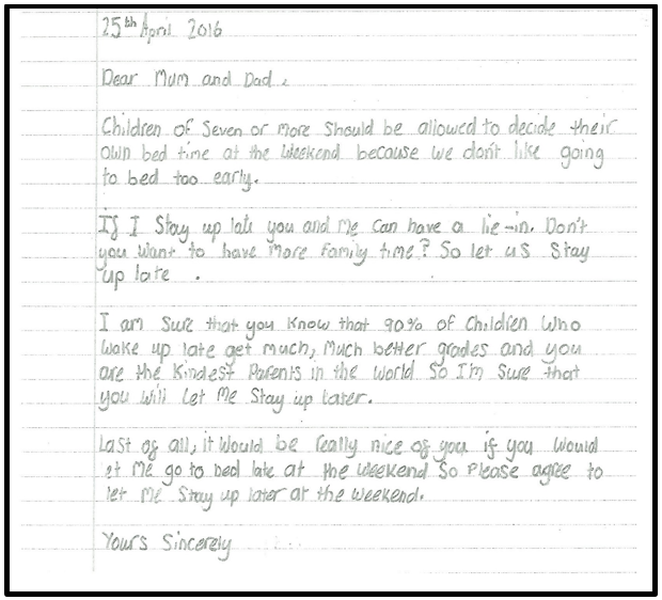 25th April 2016
Dear Mum and Dad,
Children of Seven or more should be allowed to decide their
own bed time at the weekend because we don't like going
to bed too early.
If I Stay up late you and me can have a lie-in. Don't
you want to have more family time? So let us stay
up late .
I am sure that you know that 90% of children who
wake up late get much, much better grades and you
are the kindest Parents in the world so I'm sure that
you will let me stay up later.
Last of all, it would be really nice of you if you would
et me go to bed late at the weekend so please agree to
let me stay up later at the weekend.
Yours Sincerely